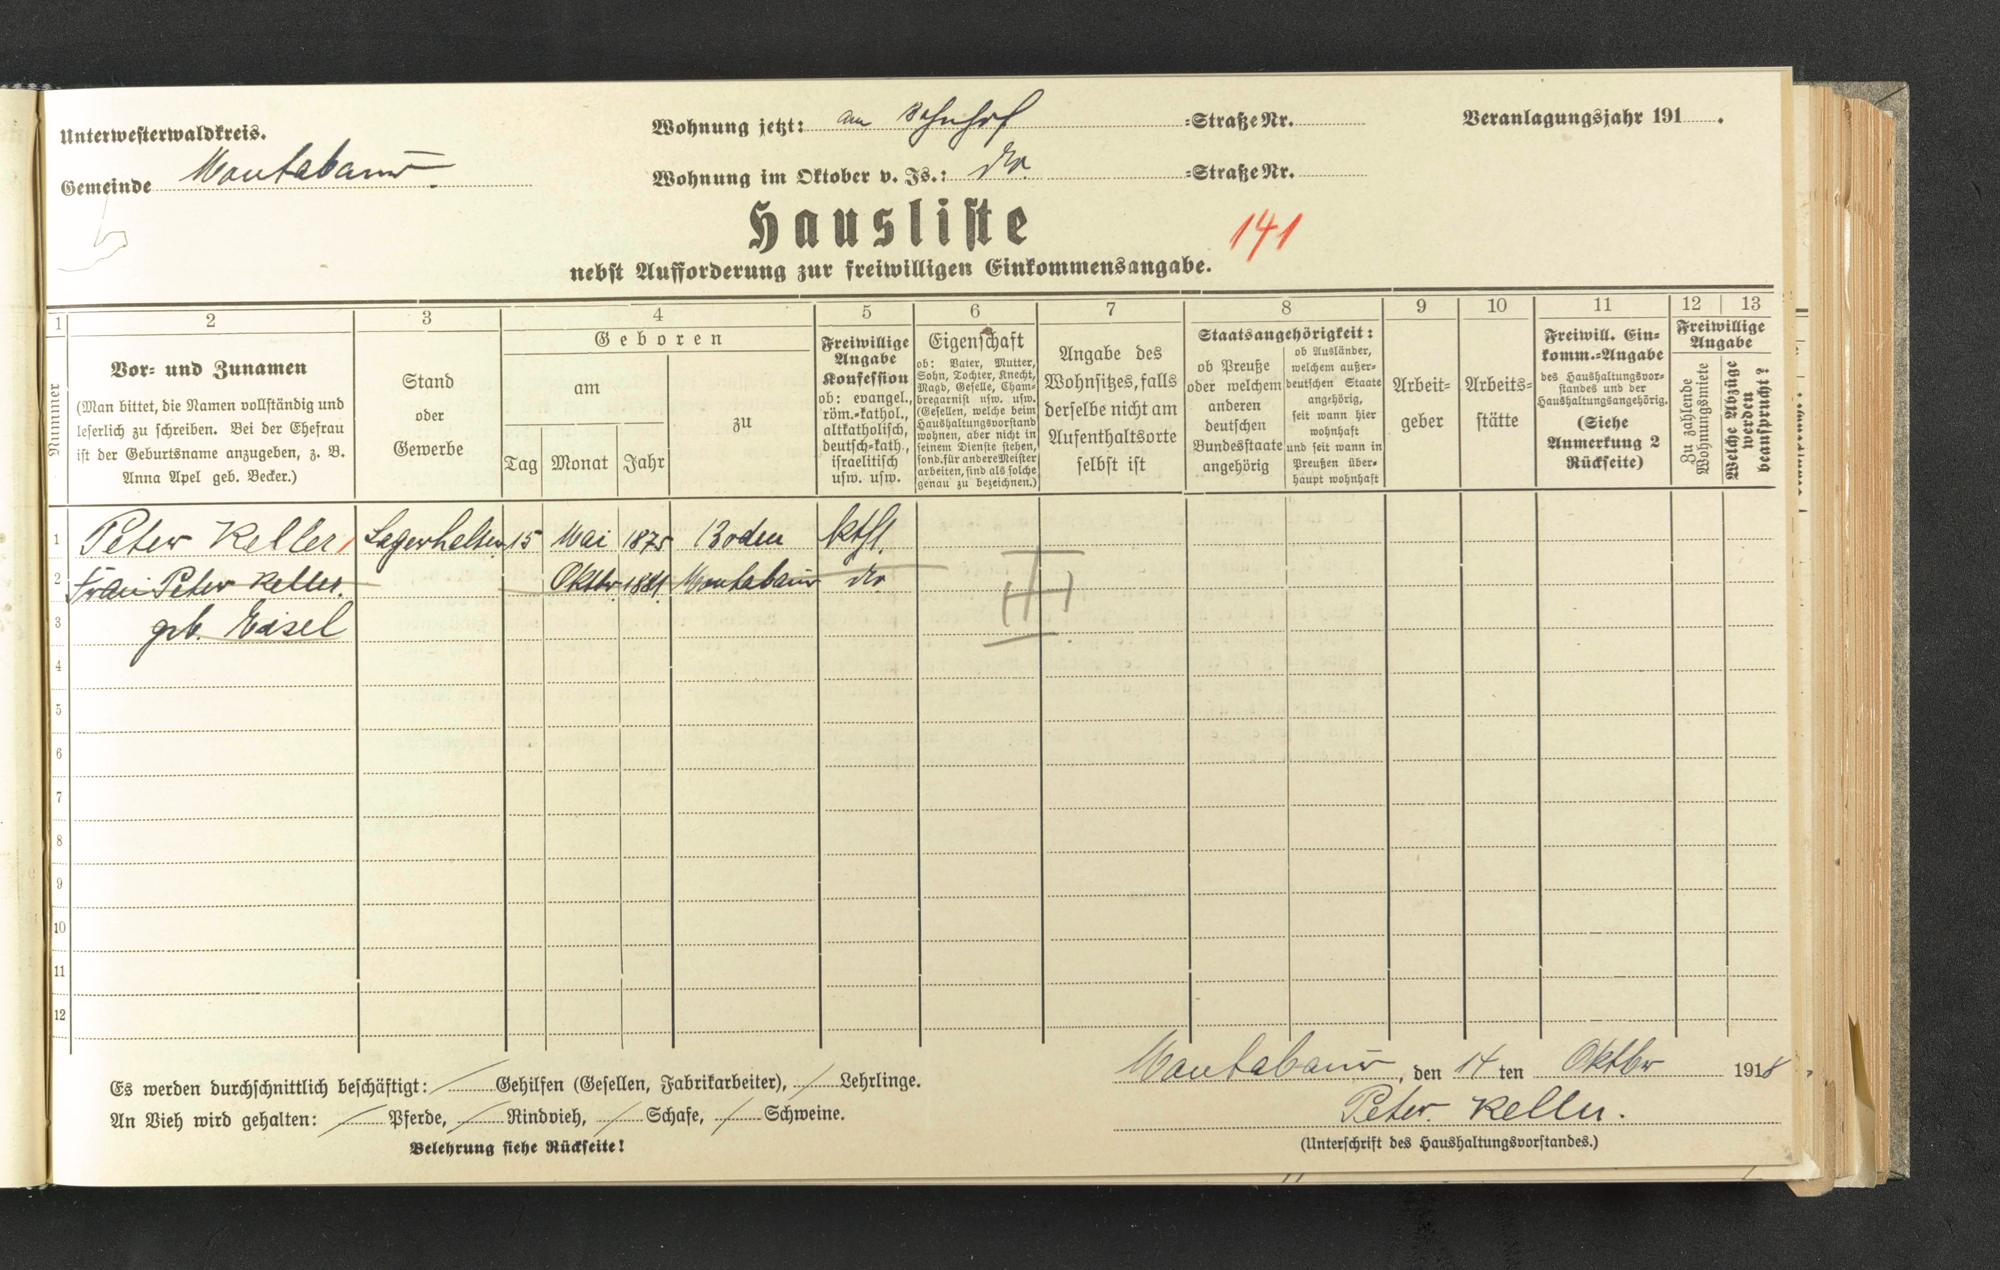 Unterwesterwaldkreis.
Gemeinde Montabaur.
Wohnung jetzt: am Bahnhof =Straße Nr.
Wohnung im Oktober v. Js.: do. =Straße Nr.
Veranlagungsjahr 191 .
Hausliste
141
nebst Aufforderung zur freiwilligen Einkommensangabe.
1 2 3 4 5 6 7 8 9 10 11 12 13
Nummer
Vor- und Zunamen
(Man bittet, die Namen vollständig und
leserlich zu schreiben. Bei der Ehefrau
ist der Geburtsname anzugeben, z. B.
Anna Apel geb. Becker.)
Stand
oder
Gewerbe
Geboren
am
Tag Monat Jahr
zu
Freiwillige
Angabe
Konfession
ob: evangel.,
röm.-kathol.,
altkatholisch,
deutsch-kath.,
israelitisch
usw. usw.
Eigenschaft
ob: Vater, Mutter,
Sohn, Tochter, Knecht,
Magd, Geselle, Cham-
bregarnist usw. usw.
(Gesellen, welche beim
Haushaltungsvorstand
wohnen, aber nicht in
seinem Dienste stehen,
sond. für andere Meister
arbeiten, sind als solche
genau zu bezeichnen.)
Angabe des
Wohnsitzes, falls
derselbe nicht am
Aufenthaltsorte
selbst ist
Staatsangehörigkeit:
ob Preuße
oder welchem
anderen
deutschen
Bundesstaate
angehörig
ob Ausländer,
welchem außer-
deutschen Staate
angehörig,
seit wann hier
wohnhaft
und seit wann in
Preußen über-
haupt wohnhaft
Arbeit-
geber
Arbeits-
stätte
Freiwill. Ein-
komm.-Angabe
des Haushaltungsvor-
standes und der
Haushaltungsangehörig.
(Siehe
Anmerkung 2
Rückseite)
Freiwillige
Angabe
Zu zahlende
Wohnungsmiete
Welche Abzüge
werden
beansprucht?
1 Peter Keller Lagerhalter 15 Mai 1875 Boden kthl.
2 Frau Peter Keller. Oktbr 1881 Montabaur do
3 geb. Eisel
III
4
5
6
7
8
9
10
11
12
Es werden durchschnittlich beschäftigt: / Gehilfen (Gesellen, Fabrikarbeiter), / Lehrlinge.
An Vieh wird gehalten: / Pferde, / Rindvieh, / Schafe, / Schweine.
Belehrung siehe Rückseite!
Montabaur, den 14 ten Oktbr 1918.
Peter. Keller.
(Unterschrift des Haushaltungsvorstandes.)